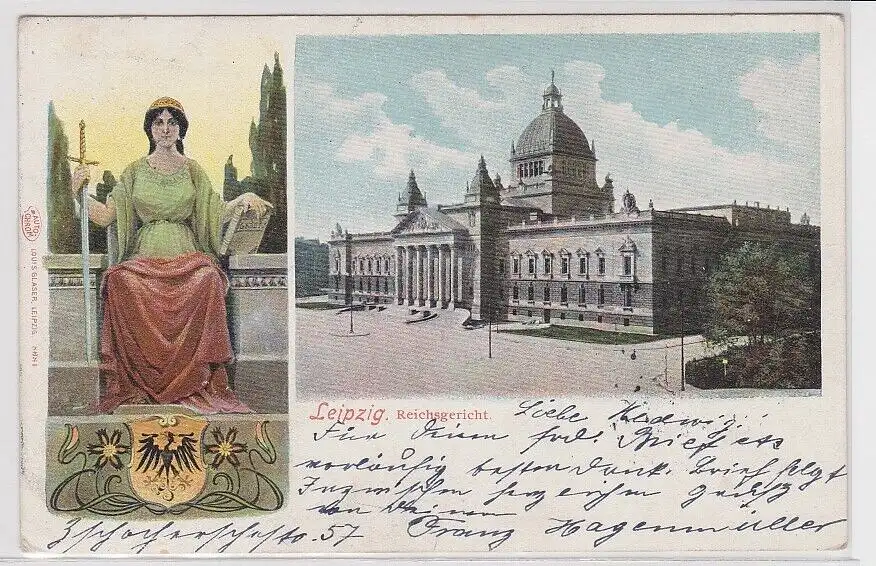 AUTO CHROM
LOUIS GLASER, LEIPZIG
Leipzig. Reichsgericht.
Liebe Hedwig!
Für Deinen frdl. Brief etc
vorläufig besten Dank. Brief folgt
Inzwischen herzlichen Gruß
von Deinem Franz Hagenmüller
Zschocherschestr. 57